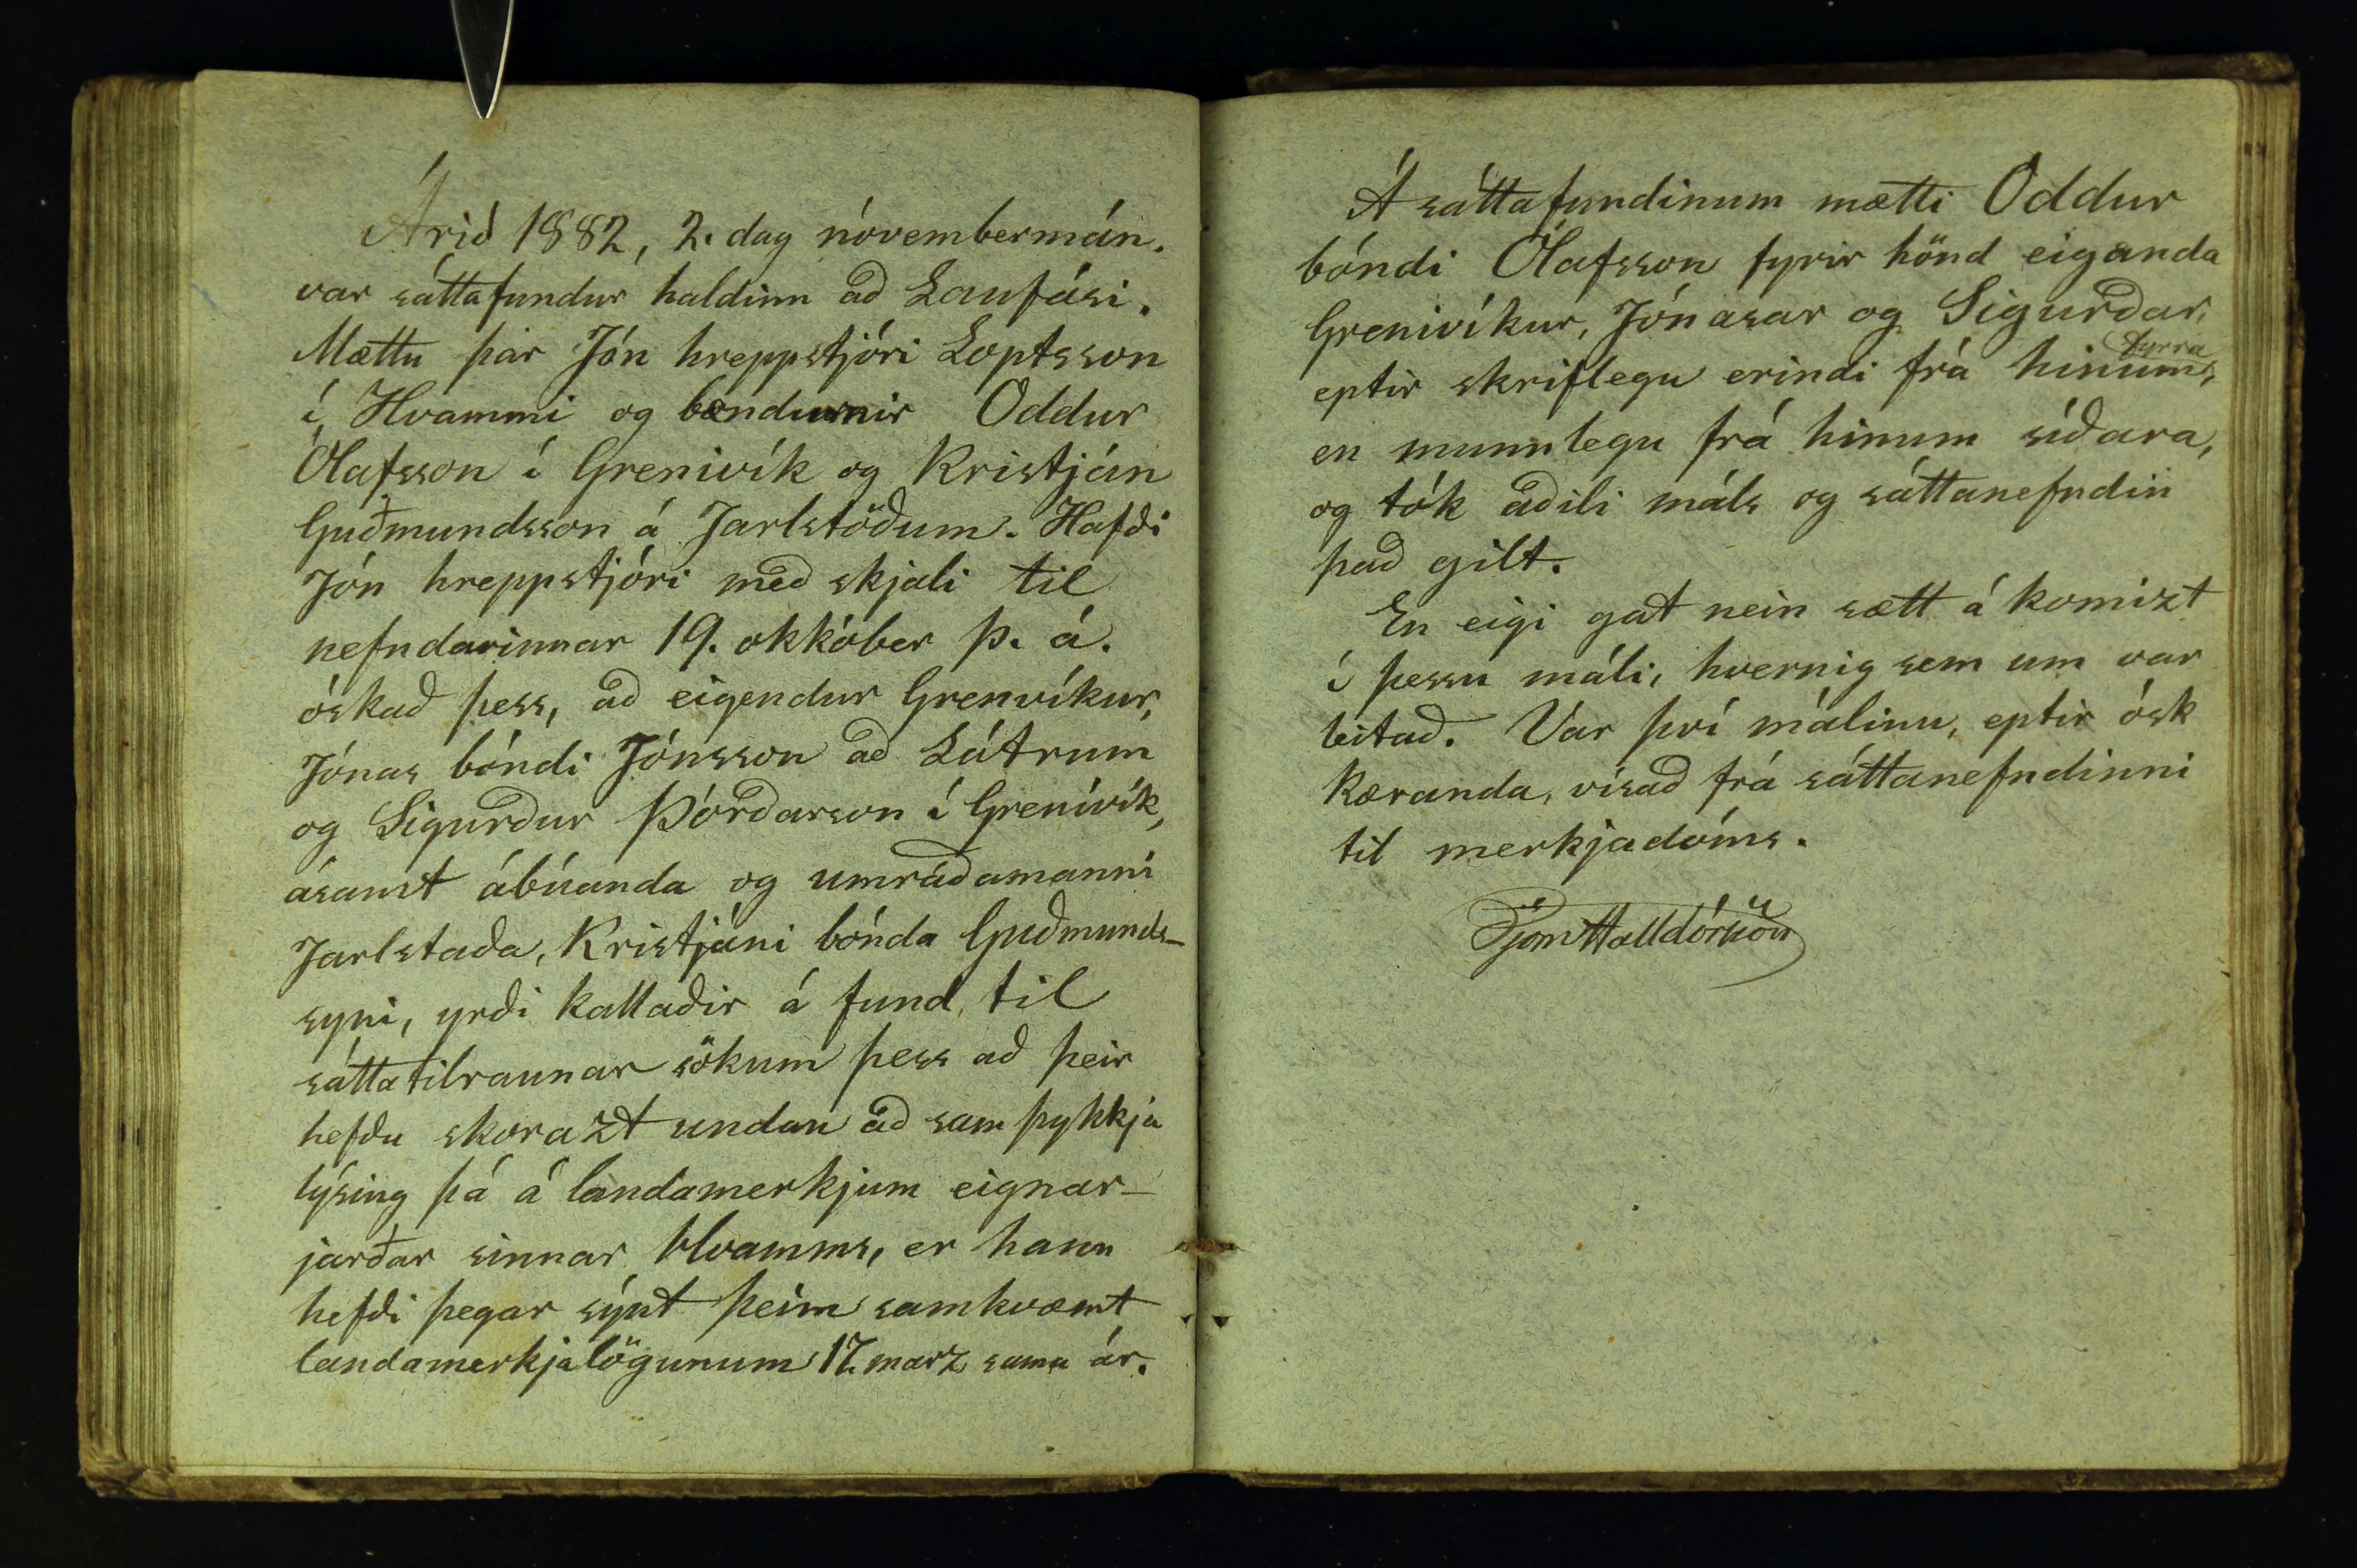 Árið 1882, 2. dag nóvembermán.
var sáttafundur haldinn að Laufási.
Mættu þar Jón hreppstjóri Loptsson
í Hvammi og bændurnir Oddur
Ólafsson í Grenivík og Kristján
Guðmundsson á Jarlstöðum. Hafði
Jón hreppstjóri með skjali til
nefndarinnar 19. okkóber þ. á.
óskað þess, að eigendur Grenvíkur,
Jónas bóndi Jónsson að Látrum
og Sigurður Þórðarson í Grenivík,
ásamt ábúanda og umráðamanni
Jarlstaða, Kristjáni bónda Guðmunds-
syni, yrði kallaðir á fund til
sáttatilraunar sökum þess að þeir
hefðu skorazt undan að samþykkja
lýsing þá á landamerkjum eignar-
jarðar sinnar Hvamms, er hann
hefði þegar sýnt þeim samkvæmt
landamerkjalögunum 17. marz sama ár.
Á sáttafundinum mætti Oddur
bóndi Ólafsson fyrir hönd eiganda
Grenivíkur, Jónasar og Sigurðar,
eptir skriflegu erindi frá hinum fyrra,
en munnlegu frá hinum síðara,
og tók aðili máls og sáttanefndin
það gilt.
En eigi gat nein sætt á komizt
í þessu máli, hvernig sem um var
leitað. Var því málinu, eptir ósk
kæranda, vísað frá sáttanefndinni
til merkjadóms.
Björn Halldórsson